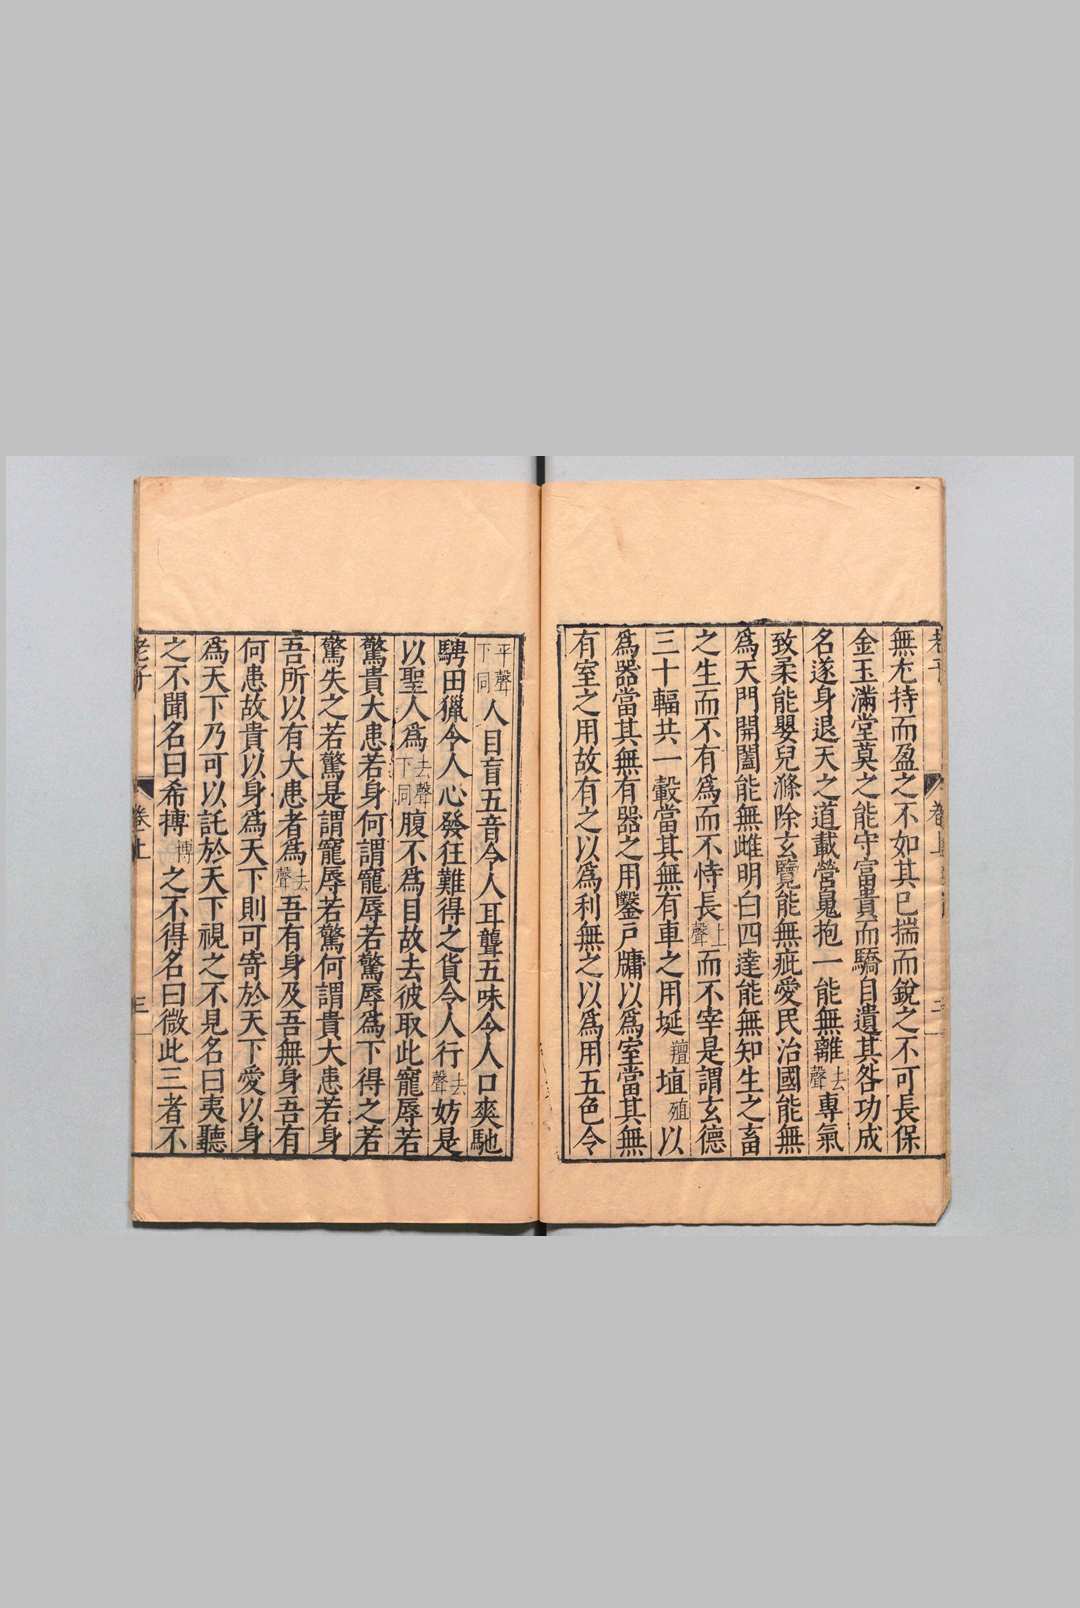 無尤持而盈之不如其已揣而銳之不可長保
金玉滿堂莫之能守富貴而驕自遺其咎功成
名遂身退天之道載營魄抱一能無離去聲專氣
致柔能嬰兒滌除玄覽能無疵愛民治國能無
爲天門開闔能無雌明白四達能無知生之畜
之生而不有爲而不恃長上聲而不宰是謂玄德
三十輻共一轂當其無有車之用埏羶埴殖以
爲器當其無有器之用鑿戸牖以爲室當其無
有室之用故有之以爲利無之以爲用五色令
平聲下同人目盲五音令人耳聾五味令人口爽馳
騁田獵令人心發狂難得之貨令人行去聲妨是
以聖人爲去聲下同腹不爲目故去彼取此寵辱若
驚貴大患若身何謂寵辱若驚辱爲下得之若
驚失之若驚是謂寵辱若驚何謂貴大患若身
吾所以有大患者爲去聲吾有身及吾無身吾有
何患故貴以身爲天下則可寄於天下愛以身
爲天下乃可以託於天下視之不見名曰夷聽
之不聞名曰希搏博之不得名曰微此三者不
老子
卷上
三